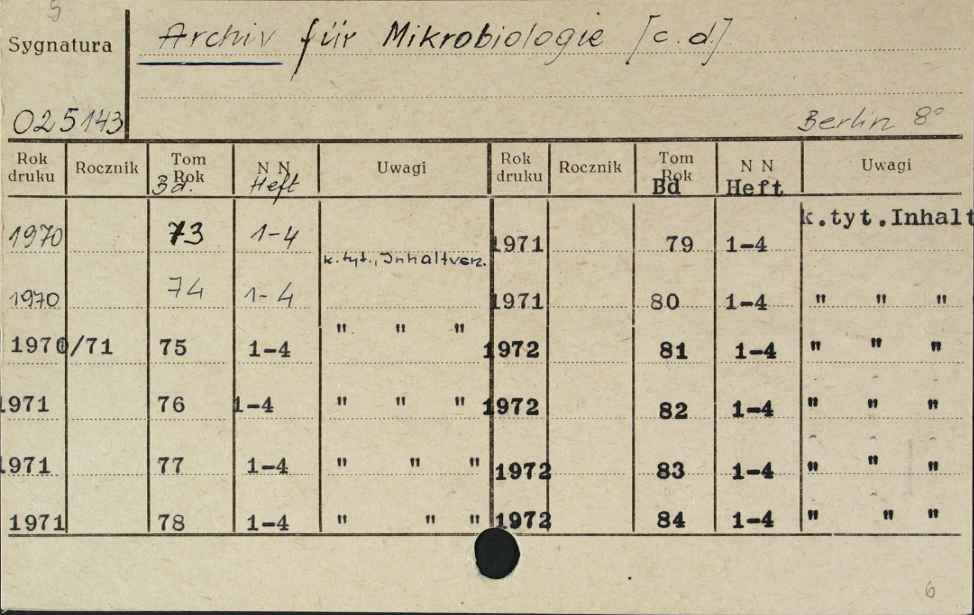 5
Sygnatura Archiv für Mikrobiologie [c.d.]
025143 Berlin 8°
Rok druku Rocznik Tom Rok Bd. N N Heft Uwagi Rok druku Rocznik Tom Rok Bd N N Heft Uwagi
1970 73 1-4 k.tyt., Inhaltverz. 1971 79 1-4 k.tyt.Inhalt
1970 74 1-4 1971 80 1-4 " " "
1970/71 75 1-4 " " " 1972 81 1-4 " " "
1971 76 1-4 " " " 1972 82 1-4 " " "
1971 77 1-4 " " " 1972 83 1-4 " " "
1971 78 1-4 " " " 1972 84 1-4 " " "
6